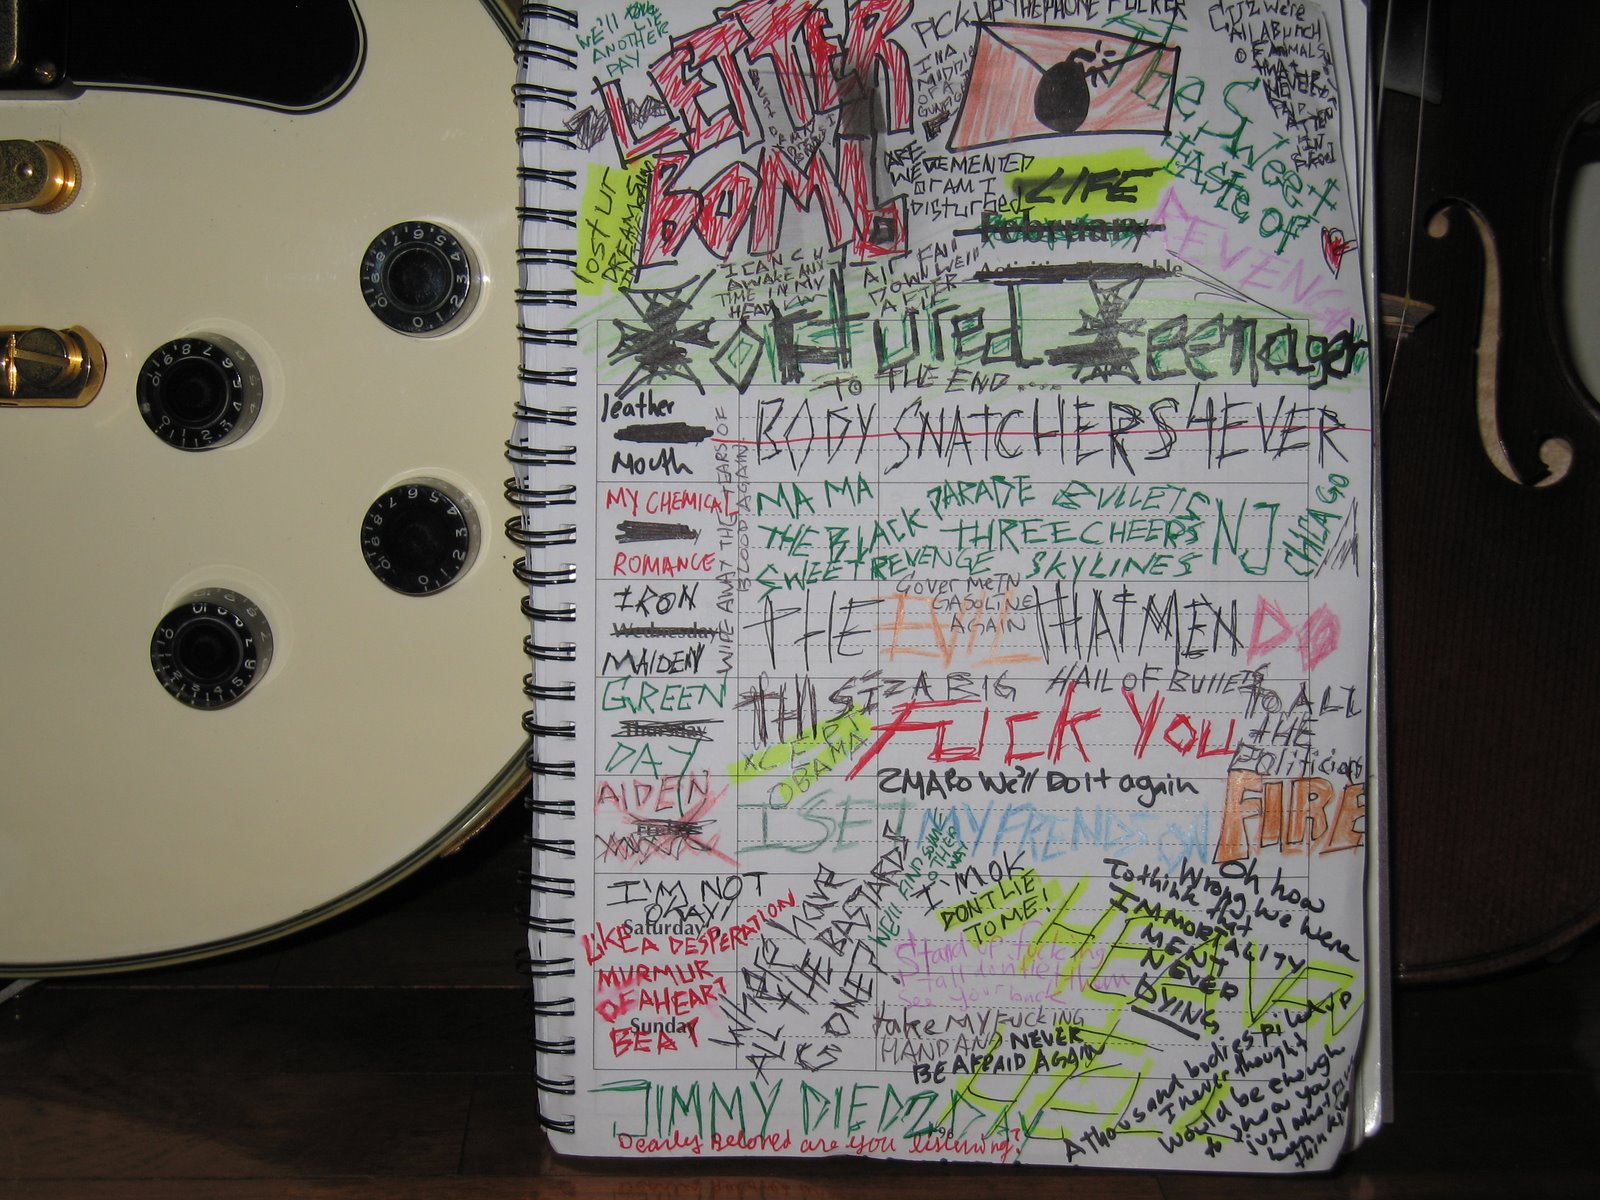 We'll
LIE
ANOTHER
DAY
LETTER
BOMB
PICK UP THE PHONE FUCKER
IN A
MIDDLE
OF A
The Sweet
taste of
REVENGE
lost ur
DREAMS
ARE
WE DEMENTED
OR AM I
Disturbed
LIFE
February
I CAN C U
AWAKE ANY-
TIME IN MY
HEAD
ALL FALL
DOWN WELL
AFTER
tortured teenager
TO THE END....
leather
Mouth
BODY SNATCHERS 4EVER
WIPE AWAY THE TEARS OF
BLOOD AGAIN
MY CHEMICAL
ROMANCE
MAMA PARADE BULLETS
THE BLACK THREE CHEERS
SWEET REVENGE SKYLINES
NJ
CHICAGO
IRON
Wednesday
MAIDEN
THE EVIL THAT MEN DO
COVER ME IN
GASOLINE
AGAIN
GREEN
Thursday
DAY
THIS IZ A BIG
HAIL OF BULLETS
FUCK YOU
TO ALL
THE
Politicians
XCEPT
OBAMA
2MARO We'll DO it again
AIDEN
I SET MY FRENDS ON FIRE
I'M NOT
OKAY!
Saturday
LIKE A DESPERATION
MURMUR
OF A HEART
BEAT
Sunday
We'll FIND SOME
OTHER
WAY
I'M OK
DONT LIE
TO ME!
Stand up fucking
tall dont let them
see your back
take MY FUCKING
HAND AND NEVER
BE AFRAID AGAIN
Oh how
Wrong we were
to think that
IMMORTALITY
MENT
NEVER
DYING
A thousand bodies piled up
I never thought
Would be enough
to show you
just what I've
been thinking
JIMMY DIED 2DAY
Dearly Beloved are you listening?